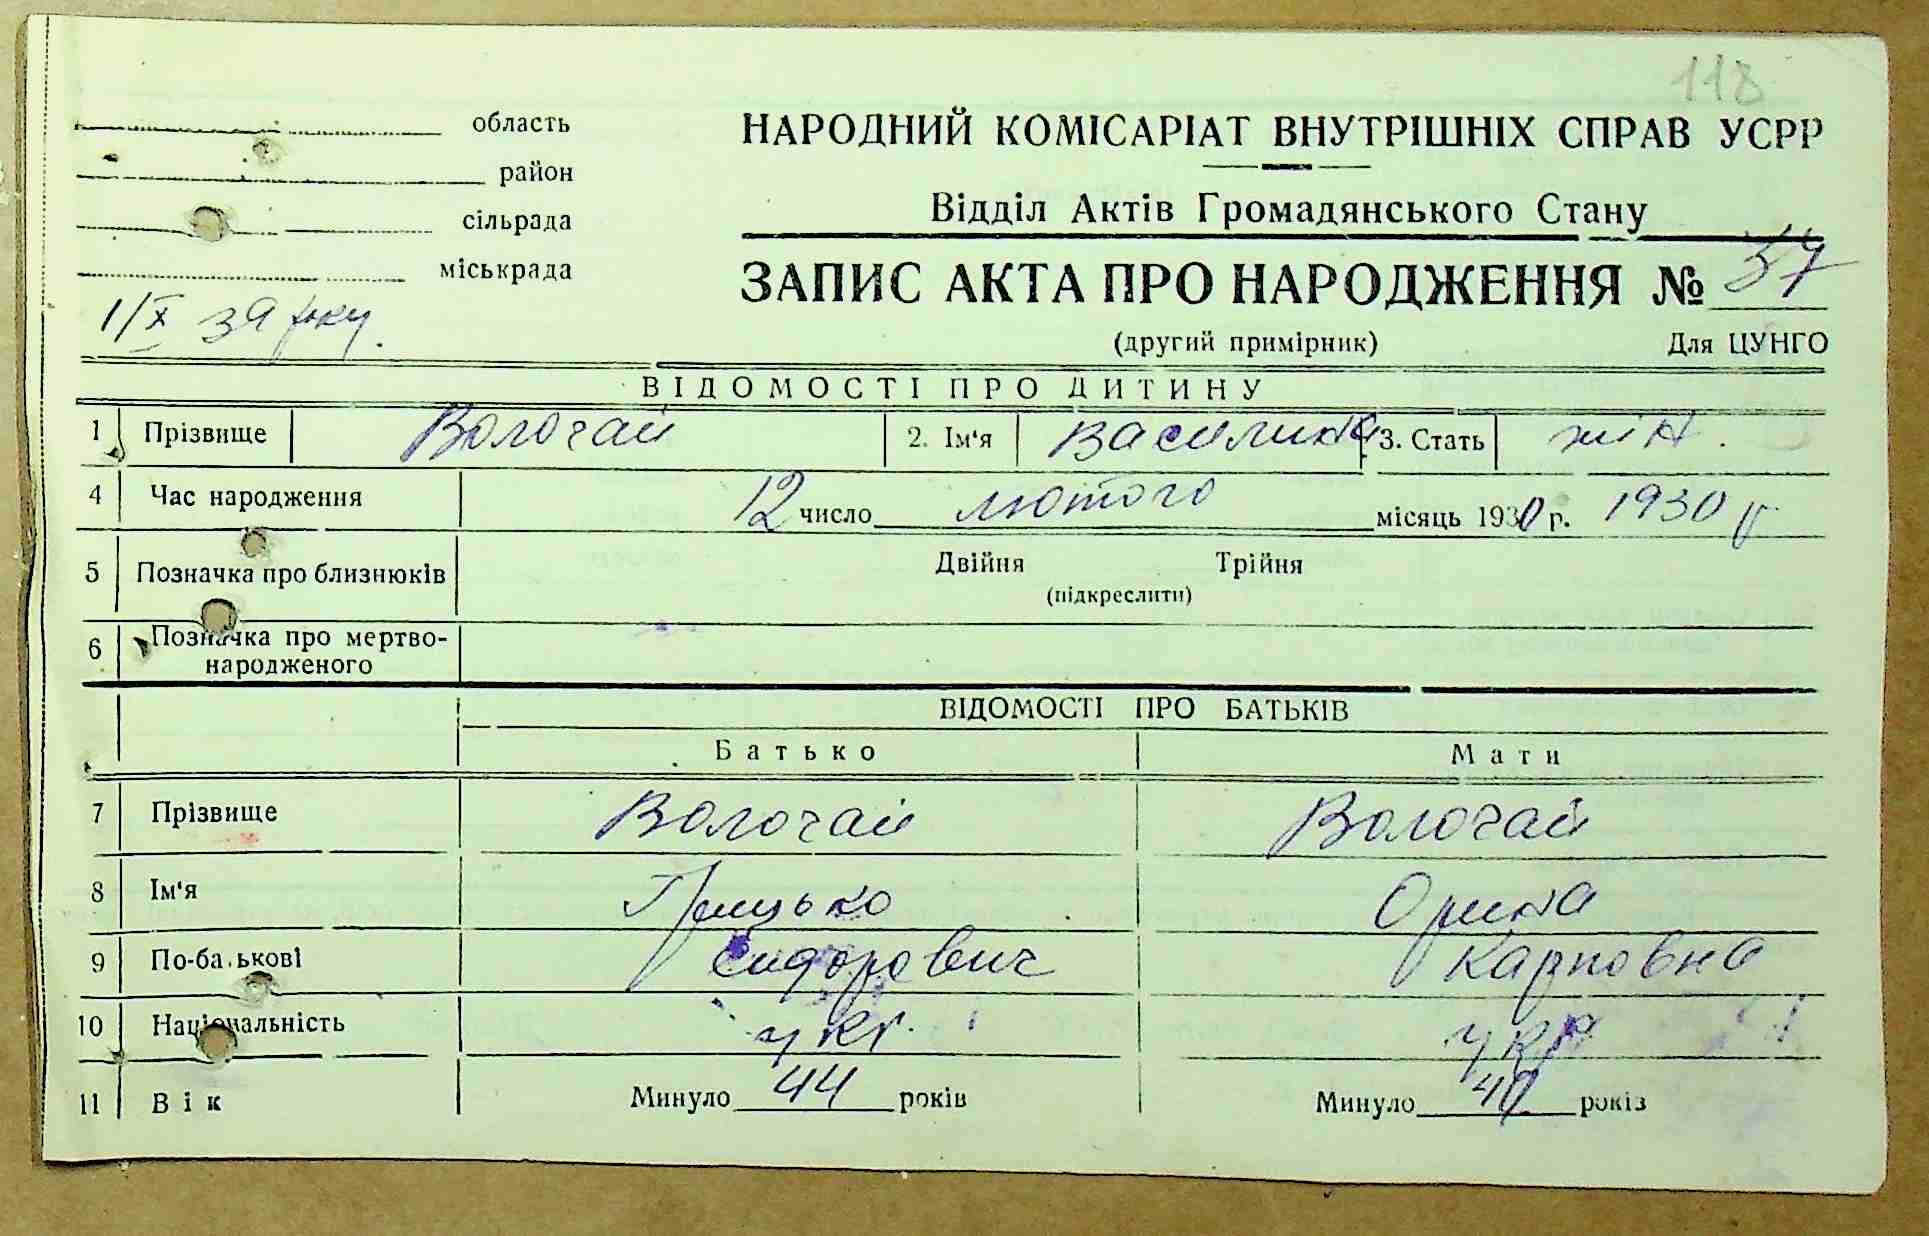 118
область
район
сільрада
міськрада
НАРОДНИЙ КОМІСАРІАТ ВНУТРІШНІХ СПРАВ УСРР
Відділ Актів Громадянського Стану
ЗАПИС АКТА ПРО НАРОДЖЕННЯ № 37
(другий примірник) Для ЦУНГО
1/X 39 року.
ВІДОМОСТІ ПРО ДИТИНУ
1 Прізвище Волочай 2. Ім'я Василина 3. Стать жін.
4 Час народження 12 число лютого місяць 1930 р. 1930 р
5 Позначка про близнюків Двійня Трійня
(підкреслити)
6 Позначка про мертво-
народженого
ВІДОМОСТІ ПРО БАТЬКІВ
Батько Мати
7 Прізвище Волочай Волочай
8 Ім'я Грицько Орина
9 По-батькові Сидорович Карповна
10 Національність укр. укр
11 Вік Минуло 44 років Минуло років